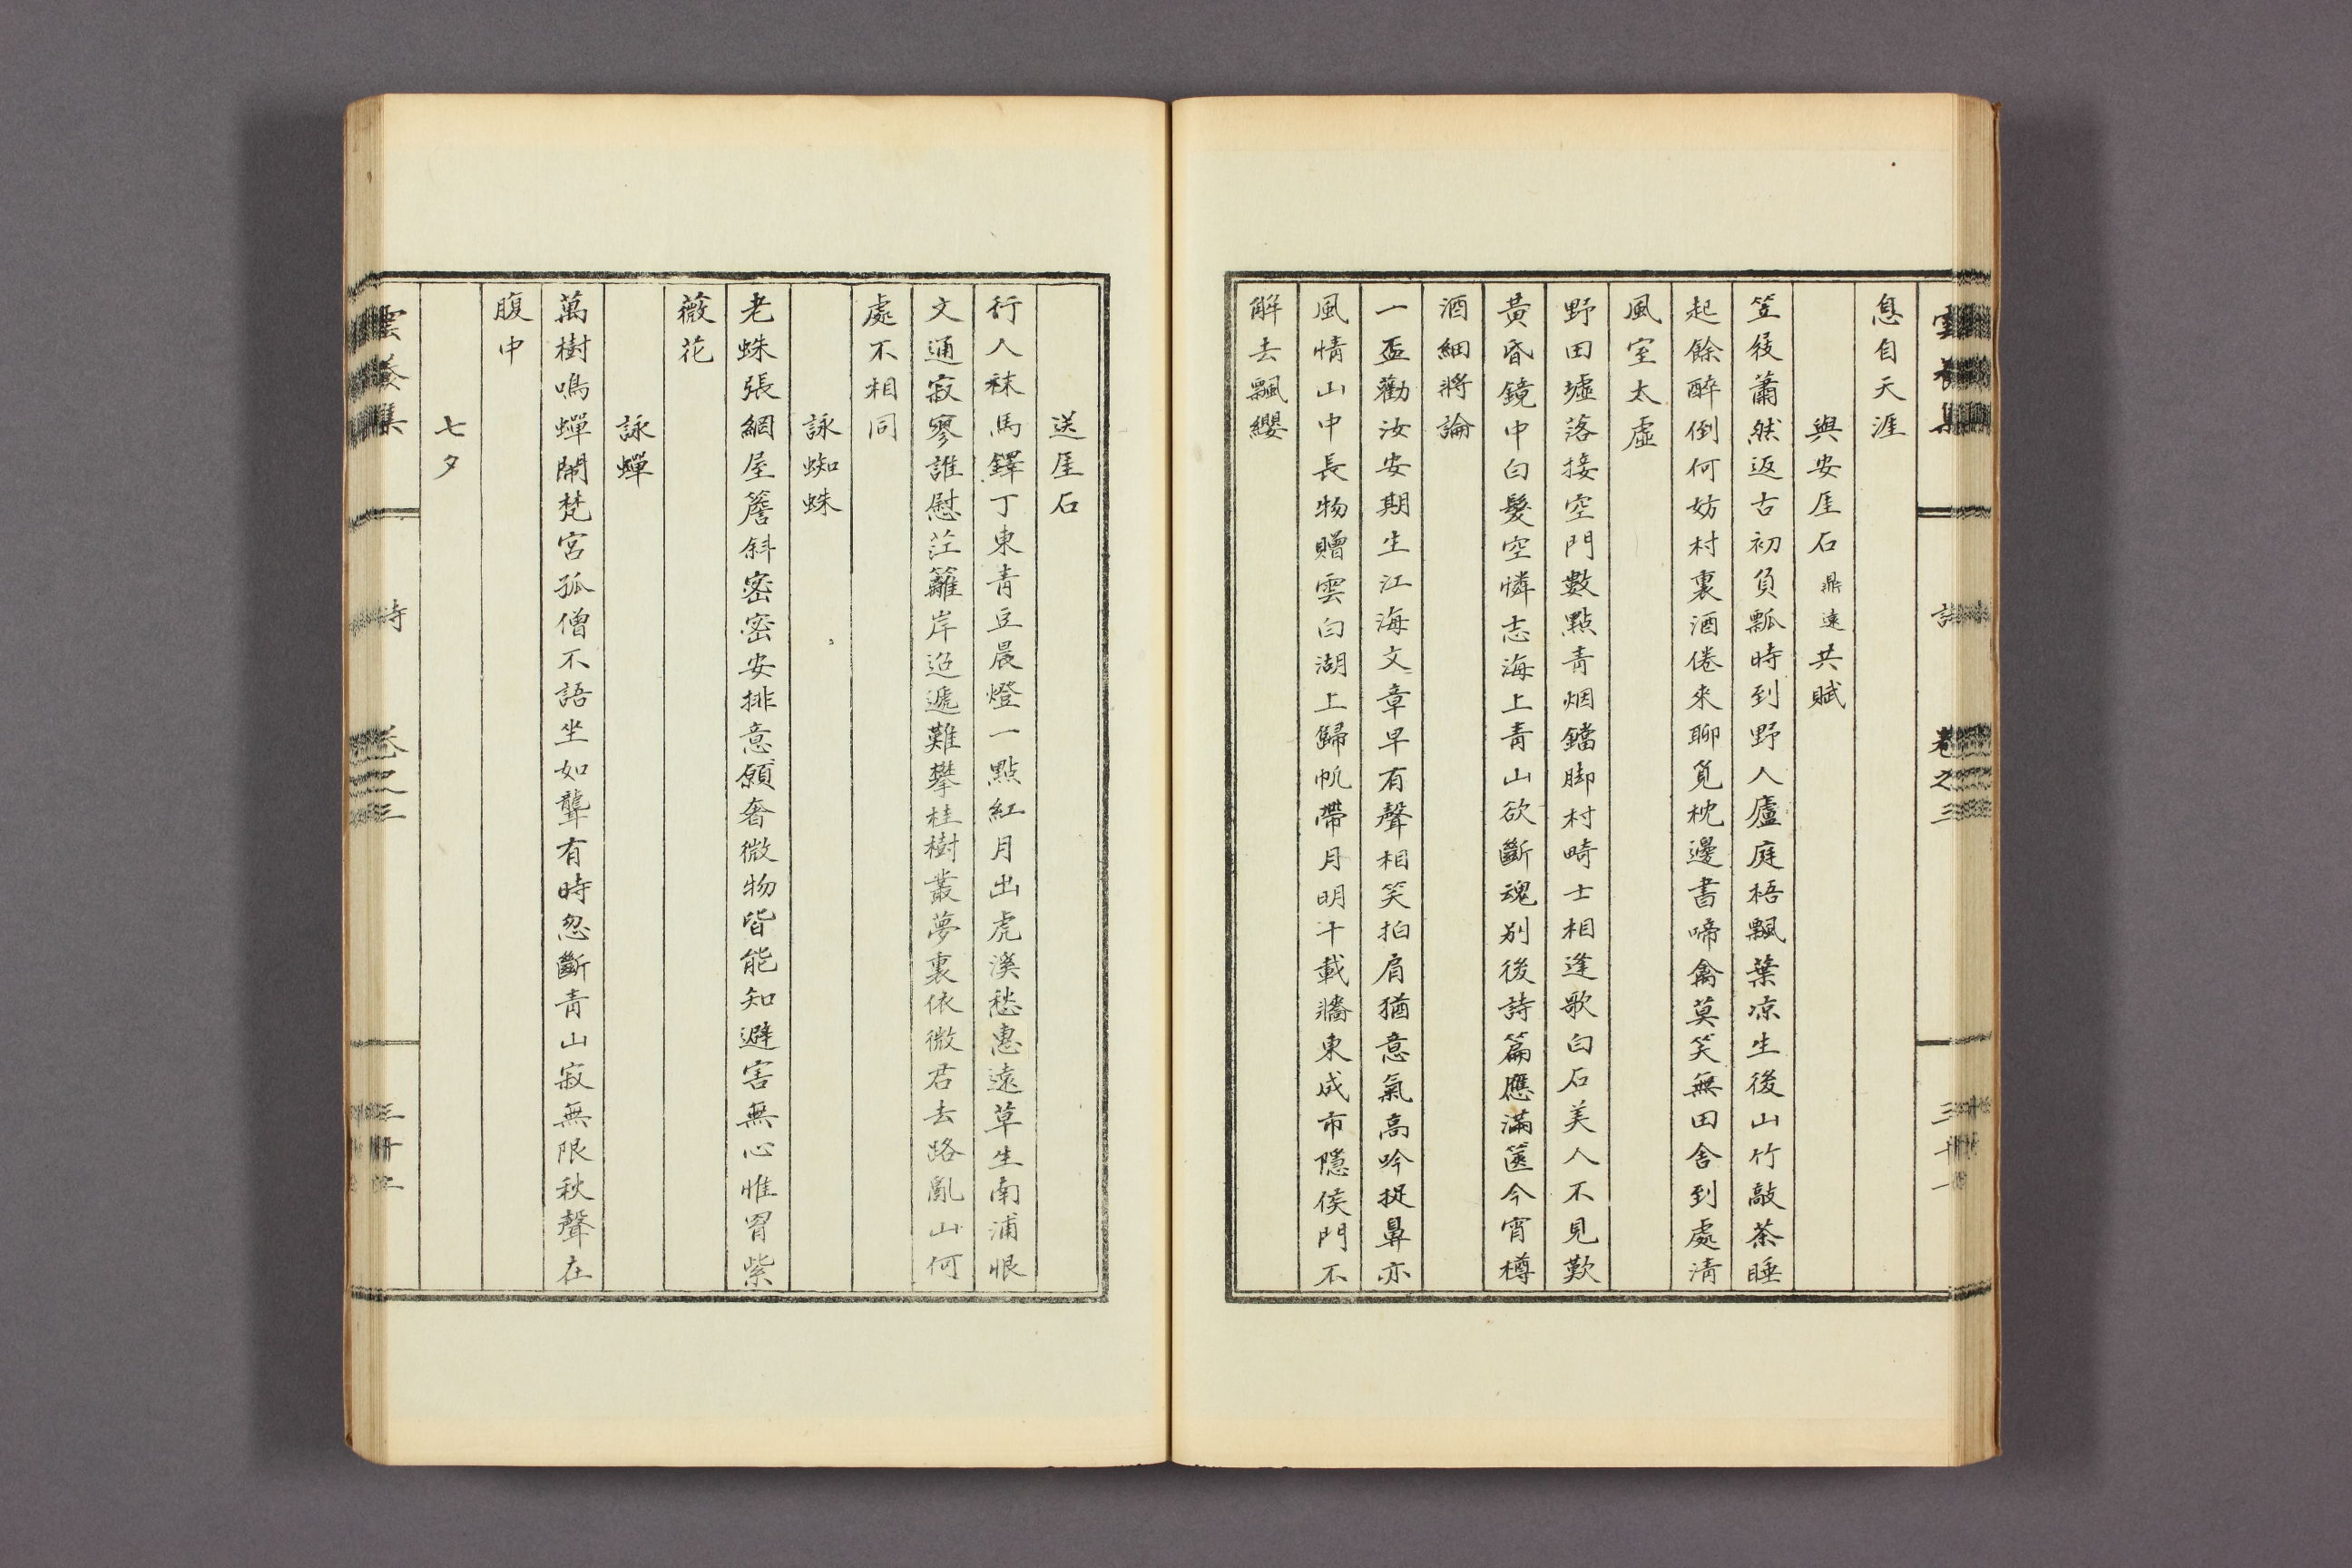 息自天涯
與安厓石鼎遠共賦
笠屐蕭然返古初負瓢時到野人廬庭梧飄葉凉生後山竹敲茶睡
起餘醉倒何妨村裏酒倦來聊覓枕邊書啼禽莫笑無田舍到處淸
風室太虛
野田墟落接空門數點靑烟鐺脚村畸士相逢歌白石美人不見歎
黃昏鏡中白髮空憐志海上靑山欲斷魂別後詩篇應滿篋今宵樽
酒細將論
一盃勸汝安期生江海文章早有聲相笑拍肩猶意氣高吟捉鼻亦
風情山中長物贈雲白湖上歸帆帶月明千載牆東成市隱侯門不
解去飄纓
雲養集 詩 卷之三 三十一
送厓石
行人秣馬鐸丁東靑豆晨燈一點紅月出虎溪愁惠遠草生南浦恨
文通寂寥誰慰茳蘺岸迢遞難攀桂樹叢夢裏依微君去路亂山何
處不相同
詠蜘蛛
老蛛張網屋簷斜密密安排意願奢微物皆能知避害無心惟罥紫
薇花
詠蟬
萬樹鳴蟬鬧梵宮孤僧不語坐如聾有時忽斷靑山寂無限秋聲在
腹中
七夕
雲養集 詩 卷之三